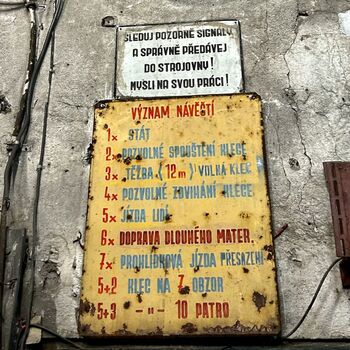 SLEDUJ POZORNĚ SIGNÁLY
A SPRÁVNĚ PŘEDÁVEJ
DO STROJOVNY!
MYSLI NA SVOU PRÁCI!
VÝZNAM NÁVĚSTÍ
1x STÁT
2x POZVOLNÉ SPOUŠTĚNÍ KLECE
3x TĚŽBA (12m) VOLNÁ KLEC
4x POZVOLNÉ ZDVIHÁNÍ KLECE
5x JÍZDA LIDÍ
6x DOPRAVA DLOUHÉHO MATER.
7x PROHLÍDKOVÁ JÍZDA PŘESAZENÍ
5+2 KLEC NA 7. OBZOR
5+3 -"- 10 PATRO